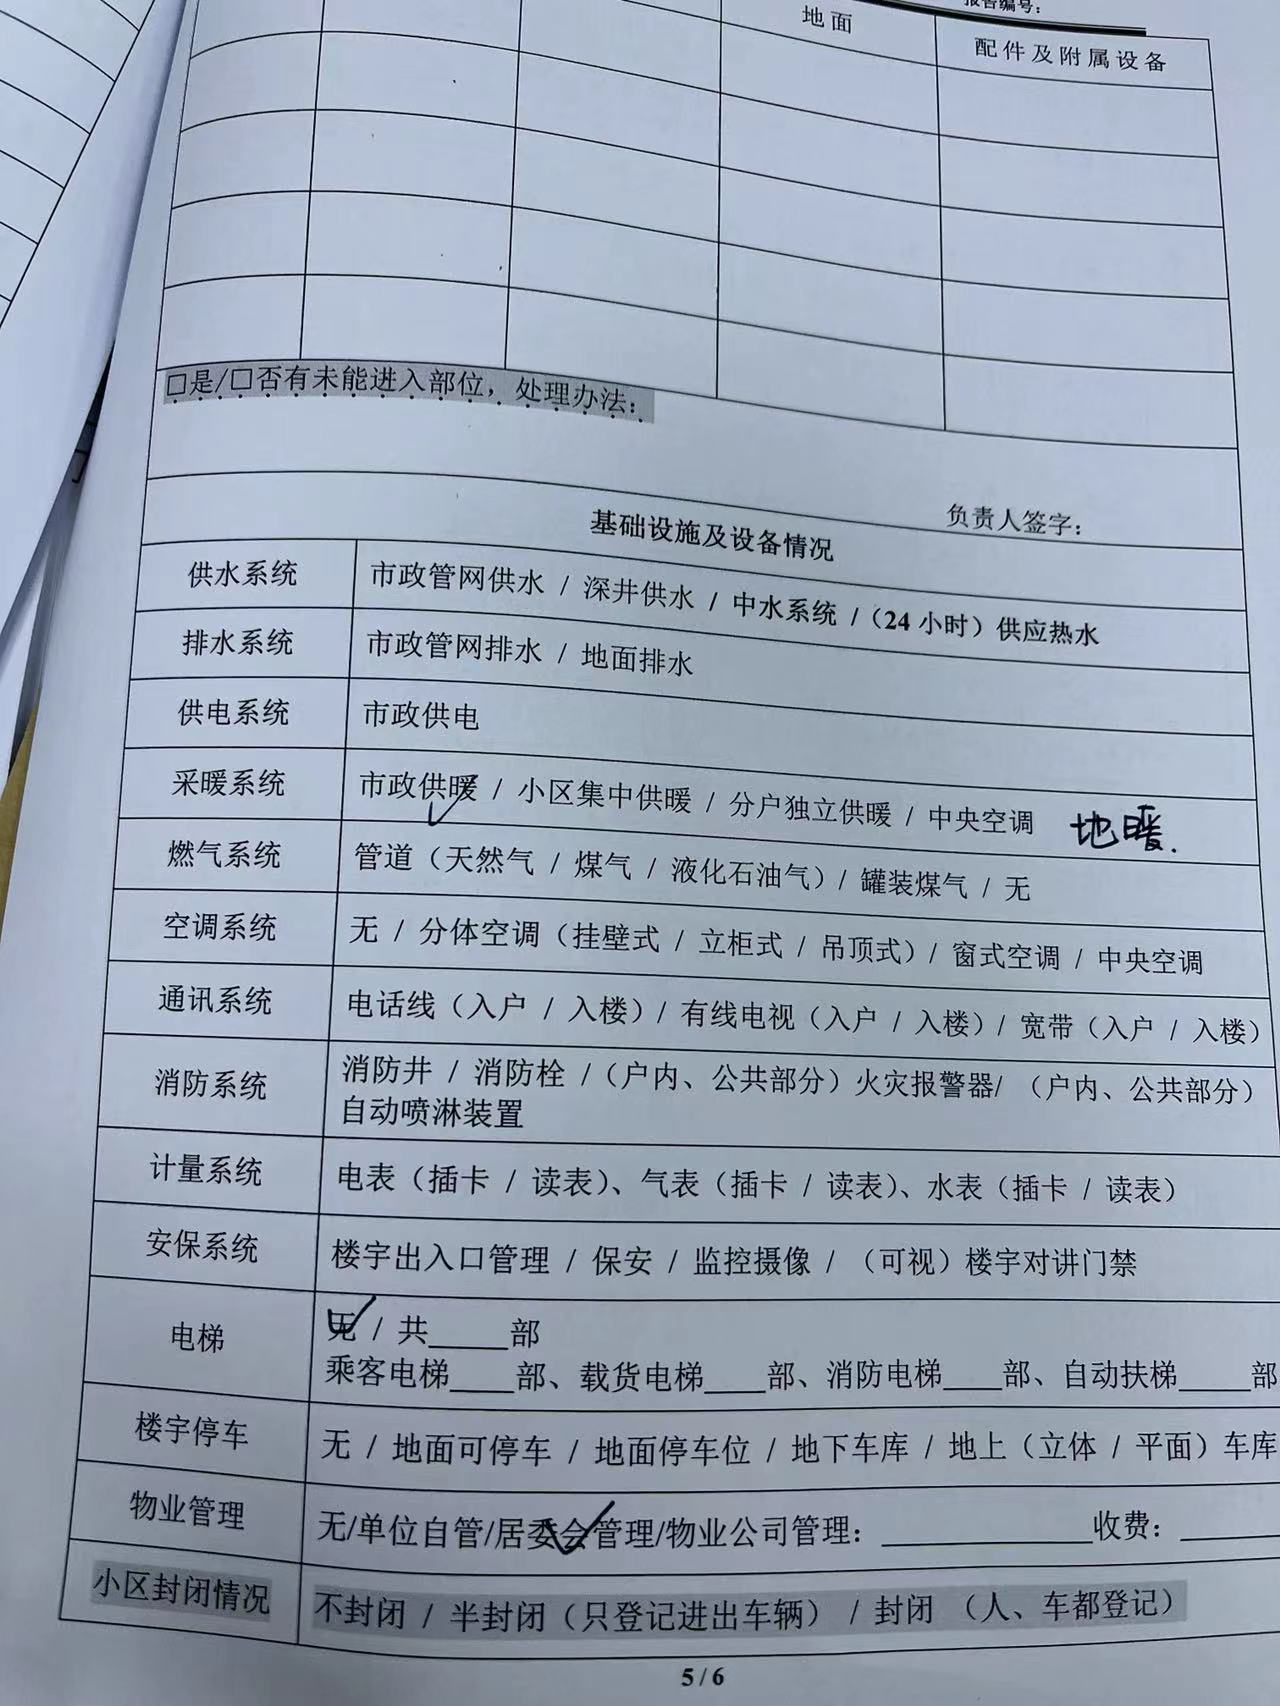 报告编号：
地面
配件及附属设备
□是/□否有未能进入部位，处理办法：
负责人签字：
基础设施及设备情况
供水系统 市政管网供水 / 深井供水 / 中水系统 /（24 小时）供应热水
排水系统 市政管网排水 / 地面排水
供电系统 市政供电
采暖系统 市政供暖 / 小区集中供暖 / 分户独立供暖 / 中央空调 地暖.
燃气系统 管道（天然气 / 煤气 / 液化石油气）/ 罐装煤气 / 无
空调系统 无 / 分体空调（挂壁式 / 立柜式 / 吊顶式）/ 窗式空调 / 中央空调
通讯系统 电话线（入户 / 入楼）/ 有线电视（入户 / 入楼）/ 宽带（入户 / 入楼）
消防系统 消防井 / 消防栓 /（户内、公共部分）火灾报警器/ （户内、公共部分）
自动喷淋装置
计量系统 电表（插卡 / 读表）、气表（插卡 / 读表）、水表（插卡 / 读表）
安保系统 楼宇出入口管理 / 保安 / 监控摄像 / （可视）楼宇对讲门禁
电梯 无 / 共_____部
乘客电梯____部、载货电梯____部、消防电梯____部、自动扶梯____部
楼宇停车 无 / 地面可停车 / 地面停车位 / 地下车库 / 地上（立体 / 平面）车库
物业管理 无/单位自管/居委会管理/物业公司管理：_____________收费：______
小区封闭情况 不封闭 / 半封闭（只登记进出车辆） / 封闭 （人、车都登记）
5 / 6